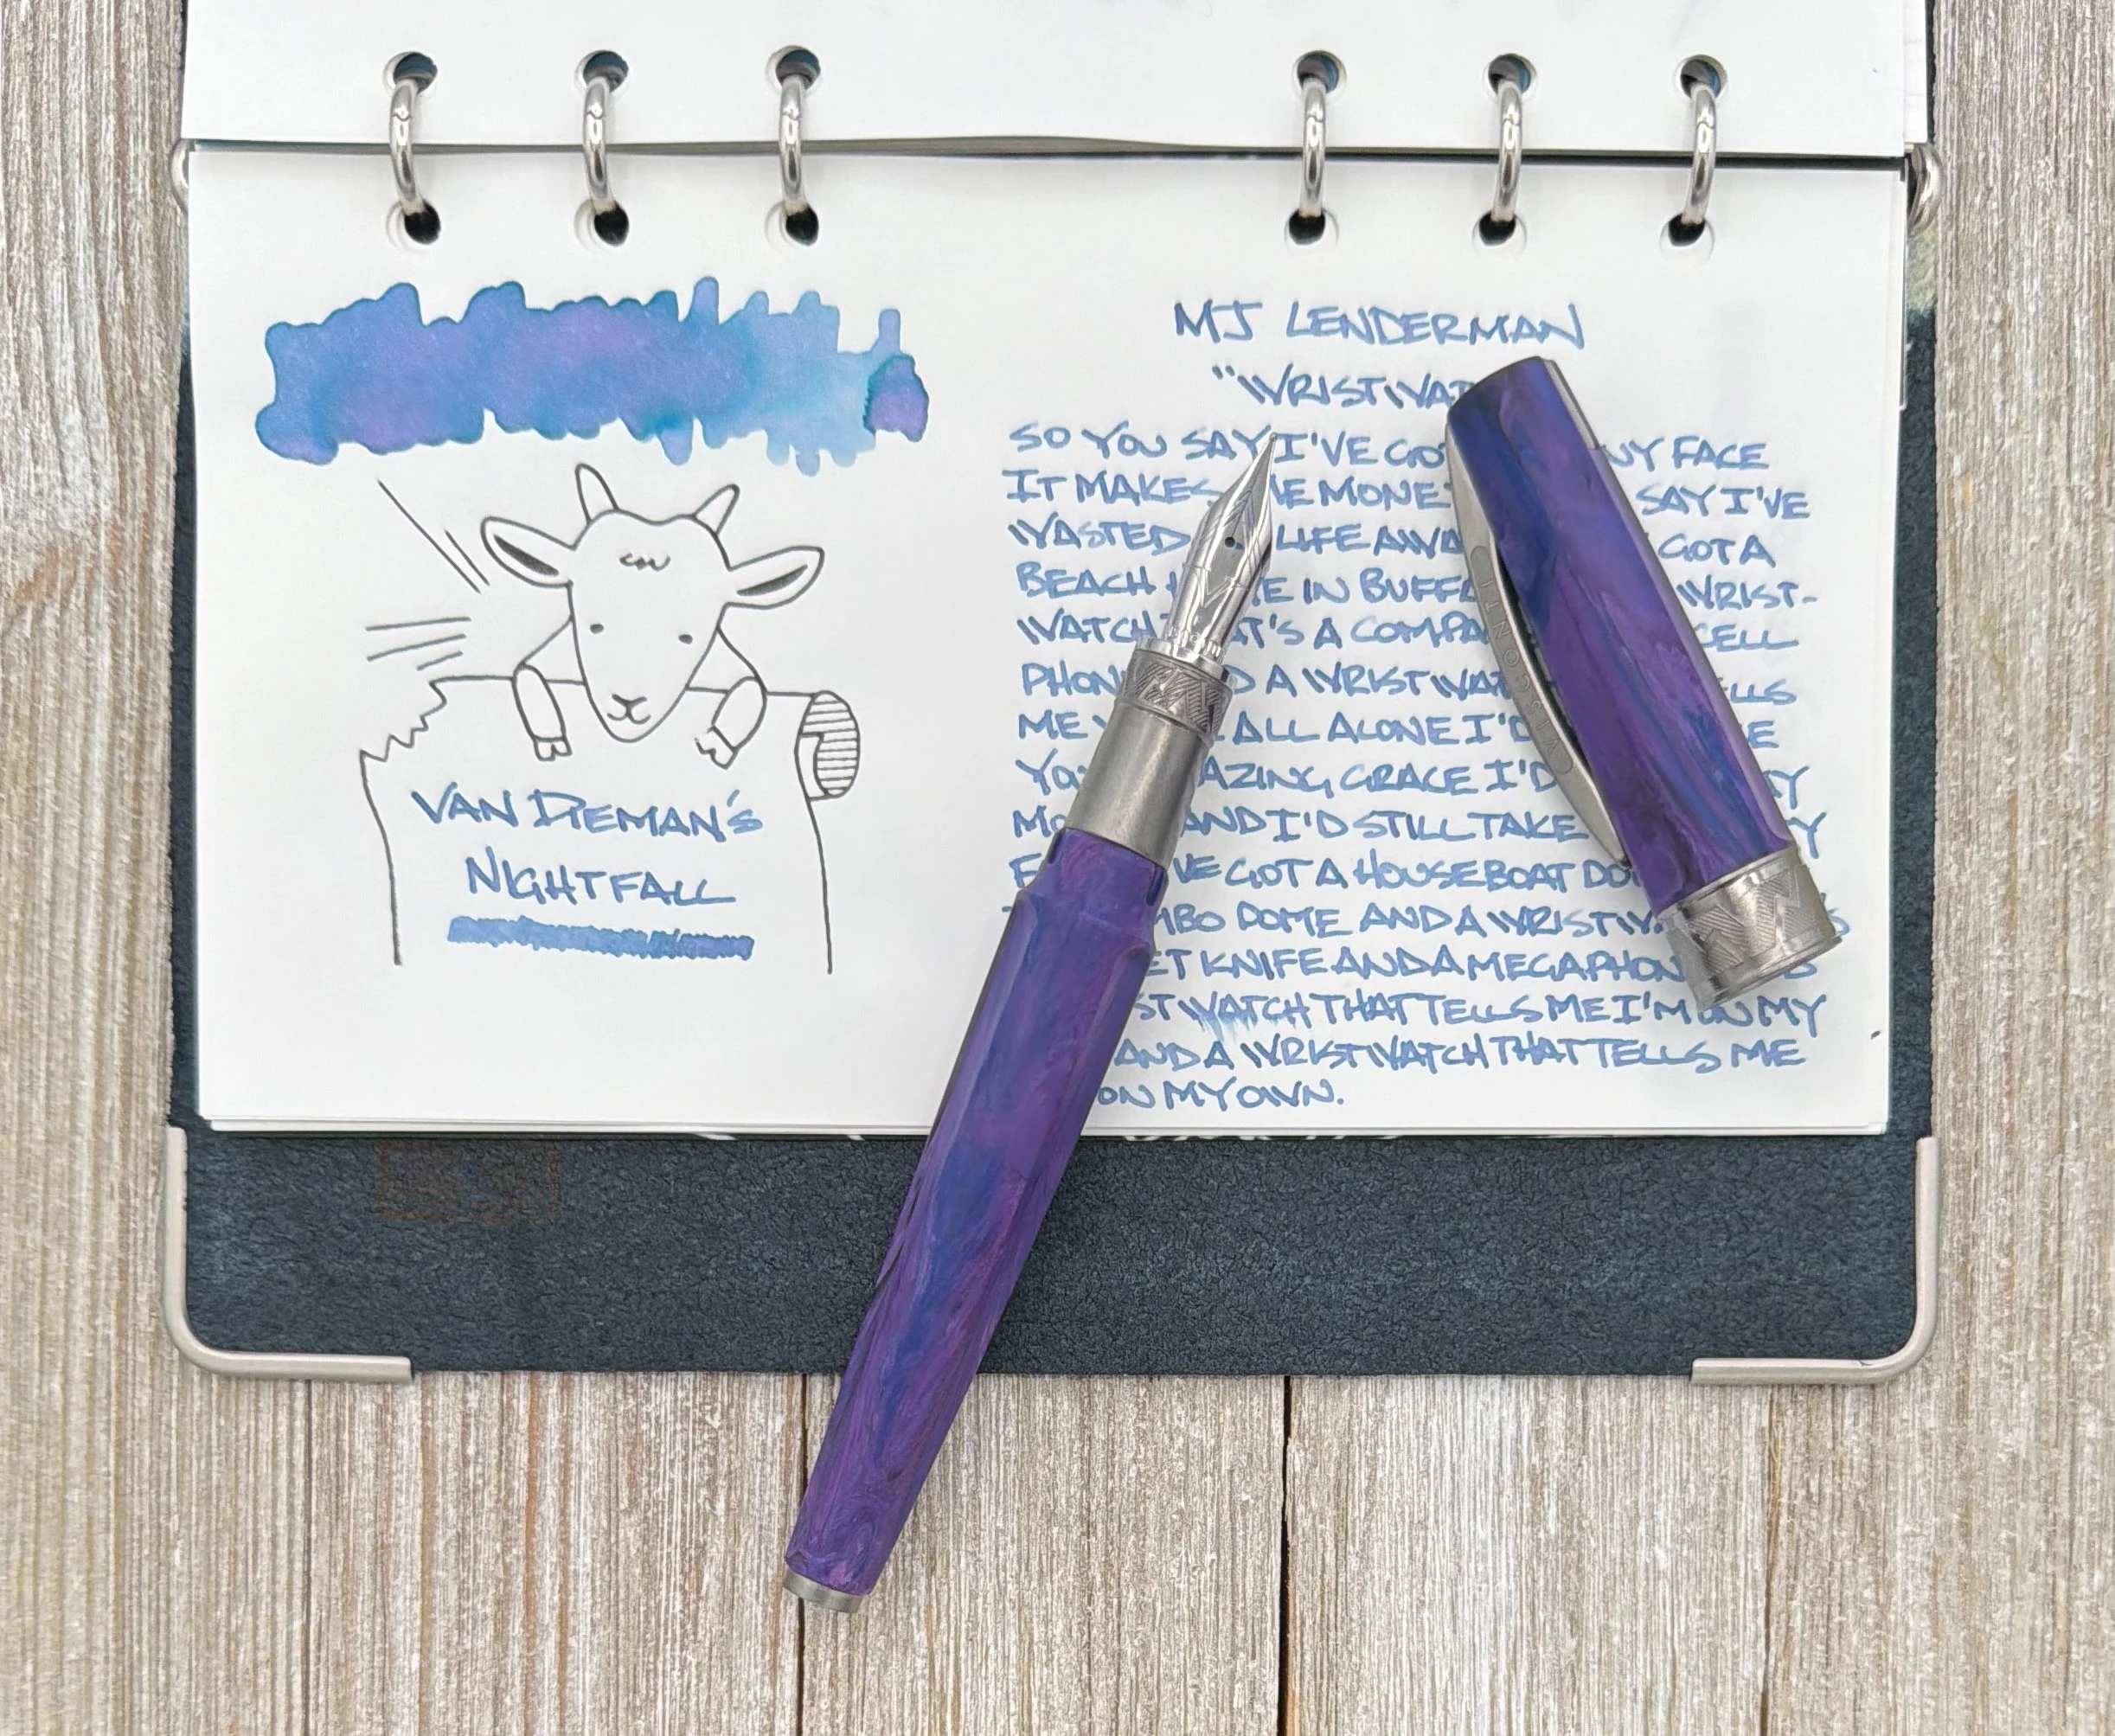 VAN DIEMAN'S
NIGHTFALL
MJ LENDERMAN
"WRISTWA
SO YOU SAY I'VE GOT NY FACE
IT MAKES ME MONEY SAY I'VE
WASTED LIFE AWA GOT A
BEACH IN BUFFA WRIST-
WATCH T'S A COMPA CELL
PHON D A WRISTWAT LLS
ME ALL ALONE I'D E
YO AZING GRACE I'D Y
MO AND I'D STILL TAKE Y
F VE GOT A HOUSEBOAT DO
MBO DOME AND A WRISTW S
ET KNIFE AND A MEGAPHON
ST WATCH THAT TELLS ME I'M ON MY
AND A WRISTWATCH THAT TELLS ME
ON MY OWN.
VISCONTI